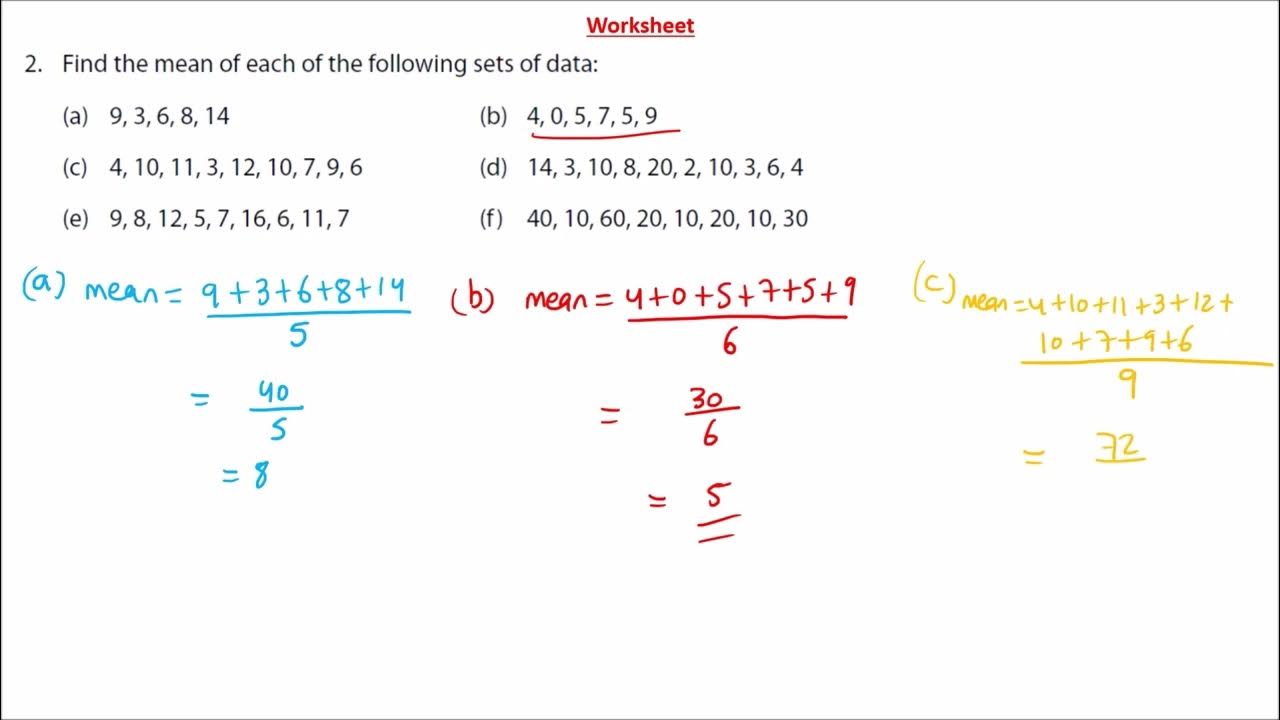 Worksheet
2. Find the mean of each of the following sets of data:
(a) 9, 3, 6, 8, 14
(b) 4, 0, 5, 7, 5, 9
(c) 4, 10, 11, 3, 12, 10, 7, 9, 6
(d) 14, 3, 10, 8, 20, 2, 10, 3, 6, 4
(e) 9, 8, 12, 5, 7, 16, 6, 11, 7
(f) 40, 10, 60, 20, 10, 20, 10, 30
(a) mean = 9+3+6+8+14
5
= 40
5
= 8
(b) mean = 4+0+5+7+5+9
6
= 30
6
= 5
(c) mean = 4+10+11+3+12+
10+7+9+6
9
= 72